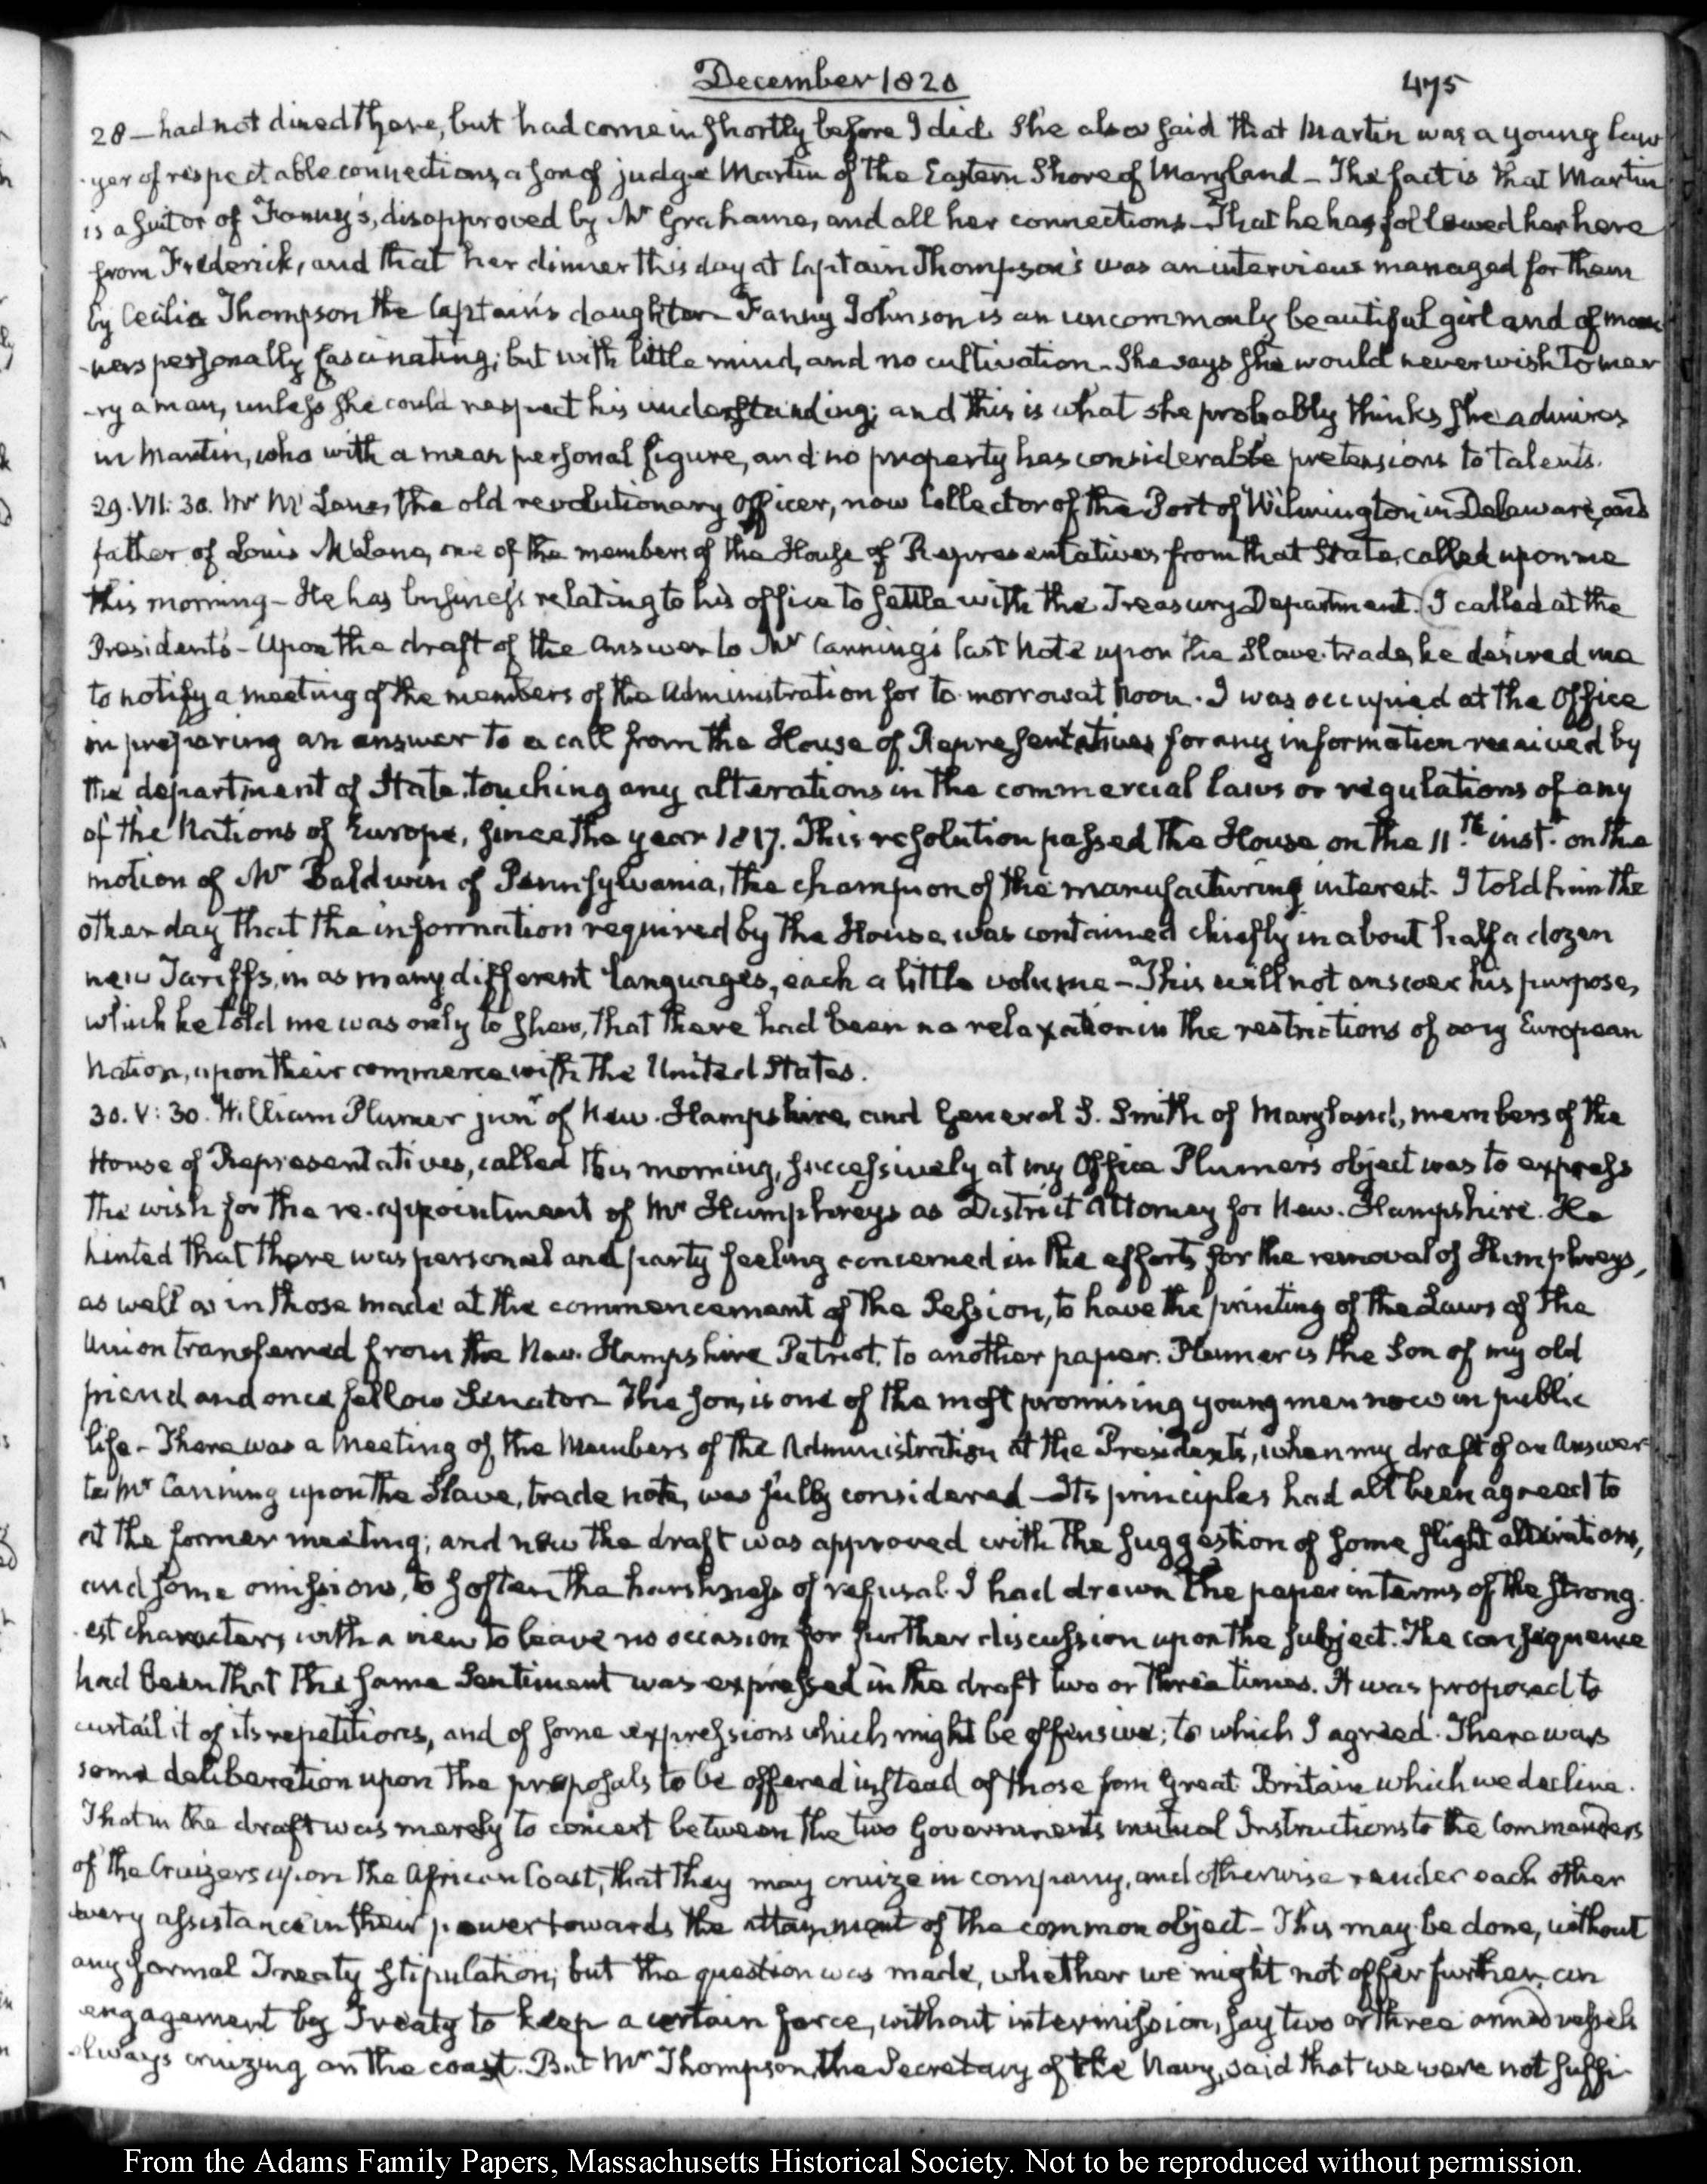 December 1820
475
28 — had not dined there, but had come in shortly before I did. She also said that Martin was a young law
-yer of respectable connections, a son of judge Martin of the Eastern Shore of Maryland — The fact is that Martin
is a suitor of Fanny's, disapproved by Mr Grahame, and all her connections — That he has followed her here
from Frederick, and that her dinner this day at Captain Thompson's was an interview managed for them
by Cecilia Thompson the Captain's daughter — Fanny Johnson is an uncommonly beautiful girl and of man
-ners personally fascinating; but with little mind, and no cultivation — She says she would never wish to mar
-ry a man, unless she could respect his understanding; and this is what she probably thinks she admires
in Martin, who with a mean personal figure, and no property has considerable pretensions to talents.
29. VII: 30. Mr Mc Lane, the old revolutionary Officer, now Collector of the Port of Wilmington in Delaware, and
father of Louis McLane, one of the members of the House of Representatives from that State, called upon me
this morning — He has business relating to his office to settle with the Treasury Department. I called at the
President's — Upon the draft of the Answer to Mr Canning's last Note upon the Slave-trade, he desired me
to notify a meeting of the members of the Administration for to-morrow at Noon. I was occupied at the Office
in preparing an answer to a call from the House of Representatives for any information received by
the department of State, touching any alterations in the commercial laws or regulations of any
of the Nations of Europe, since the year 1817. This resolution passed the House on the 11.th inst.t on the
motion of Mr Baldwin of Pennsylvania, the champion of the manufacturing interest. I told him the
other day that the information required by the House, was contained chiefly in about half a dozen
new Tariffs, in as many different languages, each a little volume — This will not answer his purpose,
which he told me was only to shew, that there had been no relaxation in the restrictions of any European
Nation, upon their commerce with the United States.
30. V: 30. William Plumer junr of New-Hampshire, and General S. Smith of Maryland, members of the
House of Representatives, called this morning, successively at my Office. Plumer's object was to express
the wish for the re-appointment of Mr Humphreys as District Attorney for New-Hampshire. He
hinted that there was personal and party feeling concerned in the efforts for the removal of Humphreys,
as well as in those made at the commencement of the Session, to have the printing of the Laws of the
Union transferred from the New-Hampshire Patriot, to another paper. Plumer is the Son of my old
friend and once fellow Senator — The son, is one of the most promising young men now in public
life — There was a Meeting of the Members of the Administration at the President's, when my draft of an Answer
to Mr Canning upon the Slave-trade note, was fully considered — Its principles had all been agreed to
at the former meeting; and now the draft was approved with the suggestion of some slight alterations,
and some omissions, to soften the harshness of refusal. I had drawn the paper in terms of the strong-
-est characters, with a view to leave no occasion for further discussion upon the subject. The consequence
had been that the same Sentiment was expressed in the draft two or three times. It was proposed to
curtail it of its repetitions, and of some expressions which might be offensive; to which I agreed. There was
some deliberation upon the proposals to be offered instead of those from Great Britain which we decline.
That in the draft was merely to concert between the two Governments mutual Instructions to the Commanders
of the Cruizers upon the African Coast, that they may cruize in company, and otherwise render each other
every assistance in their power towards the attainment of the common object — This may be done, without
any formal Treaty stipulation; but the question was made, whether we might not offer further, an
engagement by Treaty to keep a certain force, without intermission, say two or three armed vessels
always cruizing on the coast. But Mr Thompson, the Secretary of the Navy, said that we were not suffi-
From the Adams Family Papers, Massachusetts Historical Society. Not to be reproduced without permission.